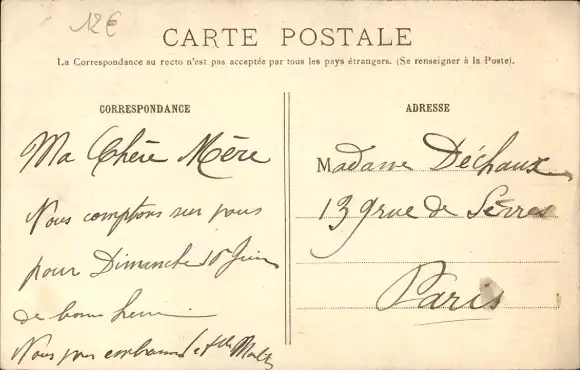 12€
CARTE POSTALE
La Correspondance au recto n'est pas acceptée par tous les pays étrangers. (Se renseigner à la Poste).
CORRESPONDANCE
ADRESSE
Ma Chère Mère
Nous comptons sur vous
pour Dimanche 1r Juin
de bonne heure
Nous
Madame Déchaux
139 rue de Sèvres
Paris